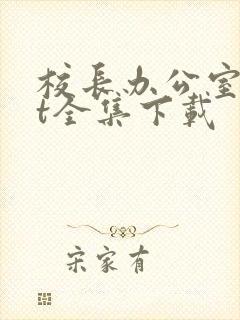 校长办公室
t全集下载
宋家有